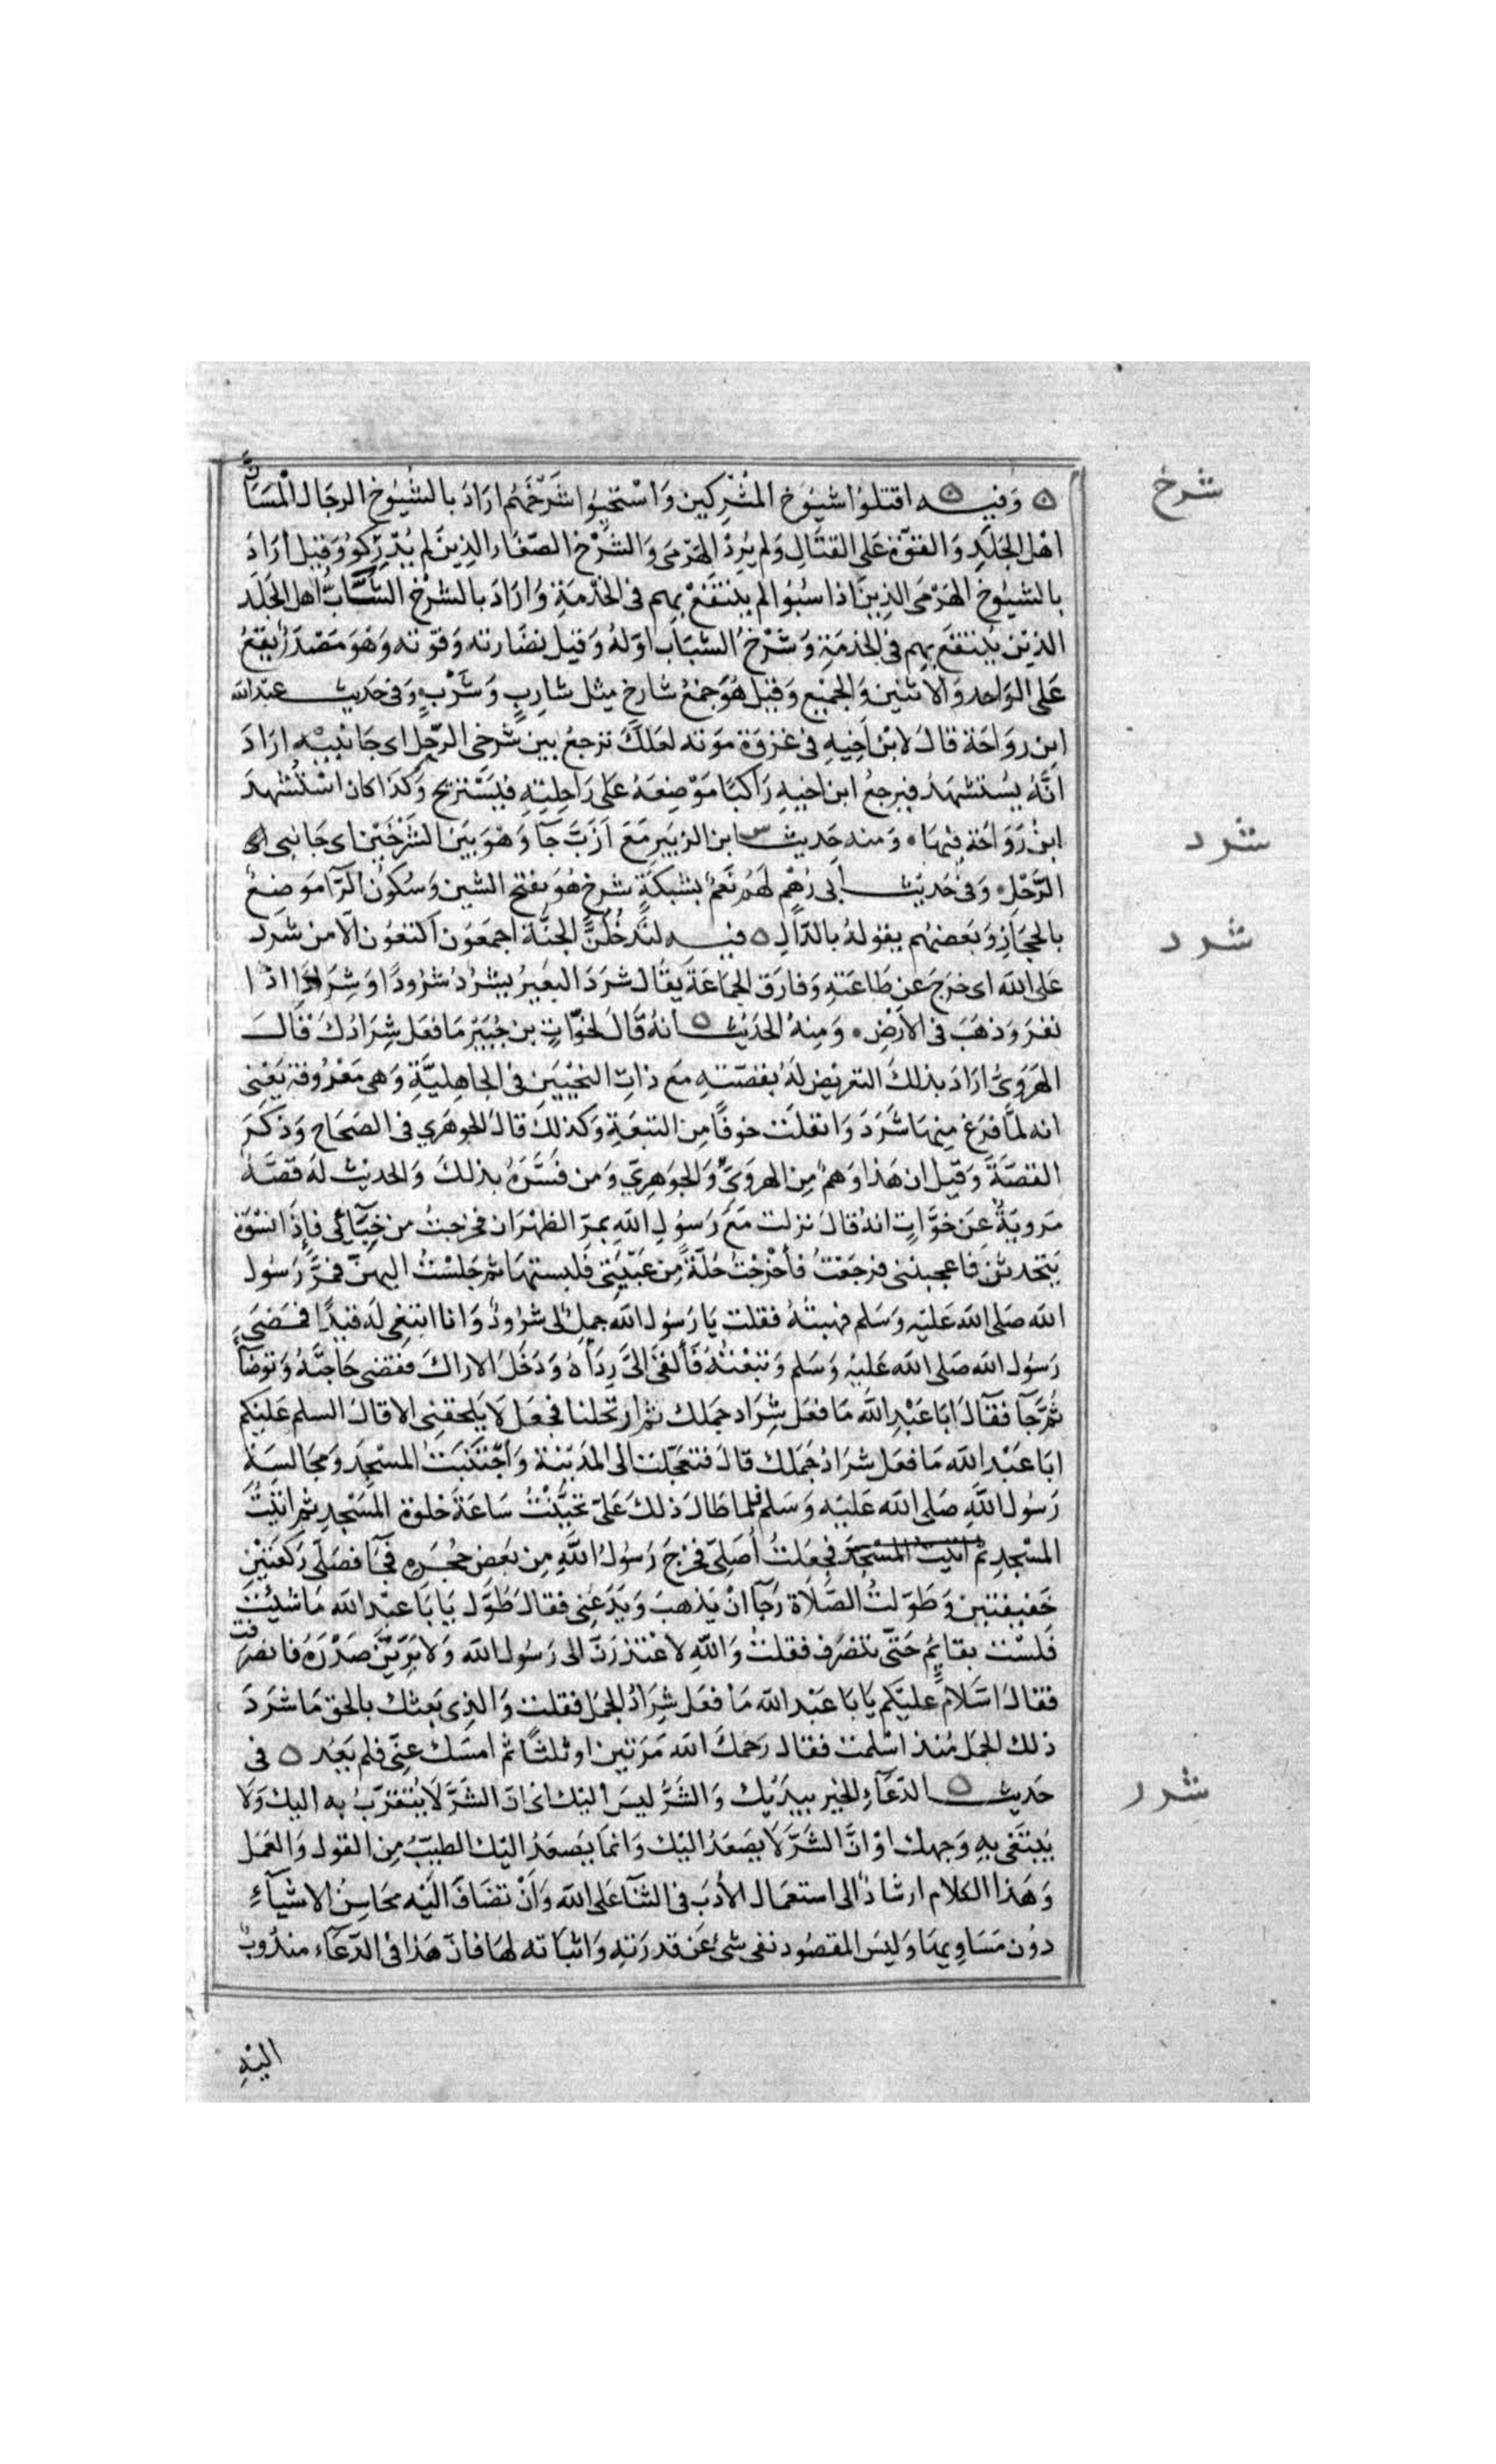 شرخ
ه وفيه ه اقتلوا شيوخ المشركين واستحيوا شرخهم اراد بالشيوخ الرجال المسان
اهل الجلد والقوة على القتال ولم يرد الهرمى والشرخ الصغار الذين لم يدركو وقيل اراد
بالشيوخ الهرمى الذين اذا سبوا لم ينتفع بهم فى الخدمة واراد بالشرخ الشباب اهل الجلد
الذين ينتفع بهم فى الخدمة وشرخ الشباب اوله وقيل نضارته وقوته وهو مصدر يقع
على الواحد والاثنين والجميع وقيل هو جمع شارخ مثل شارب وشرب وفى حديث عبد الله
ابن رواحة قال لابن اخيه فى غزوة موته لعلك ترجع بين شرخى الرحل اى جانبيه اراد
انه يستشهد فيرجع ابن اخيه راكبا موضعه على راحلته فيستريح وكذا كان استشهد
ابن رواحة فيها ٠ ومنه حديث س ابن الزبير مع ازب جآ وهو بين الشرخين اى جانبى
شرد
الرحل وفى حديث ابى رهم لهم نعم بشبكة شرخ هو بفتح الشين وسكون الرا موضع
بالحجاز وبعضهم يقوله بالدال ه فيه لتدخلن الجنة اجمعون اكتعون الا من شرد
شرد
على الله اى خرج عن طاعته وفارق الجماعة يقال شرد البعير يشرد شرودا وشرادا اذا
نفر وذهب فى الارض ٠ ومنه الحديث ه انه قال لخوات بن جبير ما فعل شرادك قال
الهروى اراد بذلك التعريض له بقصته مع ذات النحيين فى الجاهلية وهى معروفة يعنى
انه لما فرغ منها شرد وانفلت خوفا من التبعة وكذلك قال الجوهري فى الصحاح وذكر
القصة وقيل ان هذا وهم من الهروى والجوهري ومن فسره بذلك والحديث له قصة
مروية عن خوات انه قال نزلت مع رسول الله بمر الظهران فخرجت من خبآئى فاذا نسوة
يتحدثن فاعجبننى فرجعت فأخرجت حلة من عيبتى فلبستها ثم جلست اليهن فمر رسول
الله صلى الله عليه وسلم فهبته فقلت يا رسول الله جمل لى شرود وانا ابتغى له قيدا فمضى
رسول الله صلى الله عليه وسلم وتبعته فألقى الى ردأه ودخل الاراك فقضى حاجته وتوضأ
ثم جآ فقال ابا عبد الله ما فعل شراد جملك ثم ارتحلنا فجعل لا يلحقنى الا قال السلم عليكم
ابا عبد الله ما فعل شراد جملك قال فتعجلت الى المدينة واجتنبت المسجد ومجالسة
رسول الله صلى الله عليه وسلم فلما طال ذلك على تحينت ساعة خلوة المسجد ثم اتيت
المسجد ثم اتيت المسجد فجعلت أصلى فخرج رسول الله من بعض حجره فجآ فصلى ركعتين
خفيفتين وطولت الصلاة رجآ ان يذهب ويدعنى فقال طول يابا عبد الله ما شيئت
فلست بقايم حتى تنصرف فقلت والله لاعتذرن الى رسول الله ولابرئن صدره فانصرفت
فقال السلام عليكم يابا عبد الله ما فعل شراد الجمل فقلت والذى بعثك بالحق ما شرد
ذلك الجمل منذ اسلمت فقال رحمك الله مرتين او ثلثا ثم امسك عنى فلم يعد ه فى
شرر
حديث ه الدعآء الخير بيديك والشر ليس اليك اى ان الشر لا يتقرب به اليك ولا
يبتغى به وجهك او ان الشر لا يصعد اليك وانما يصعد اليك الطيب من القول والعمل
وهذا الكلام ارشاد الى استعمال الأدب فى الثنآ على الله وان تضاف اليه محاسن الاشيآء
دون مساويها وليس المقصود نفى شئ عن قدرته واثباته لها فان هذا فى الدعآء مندوب
اليه